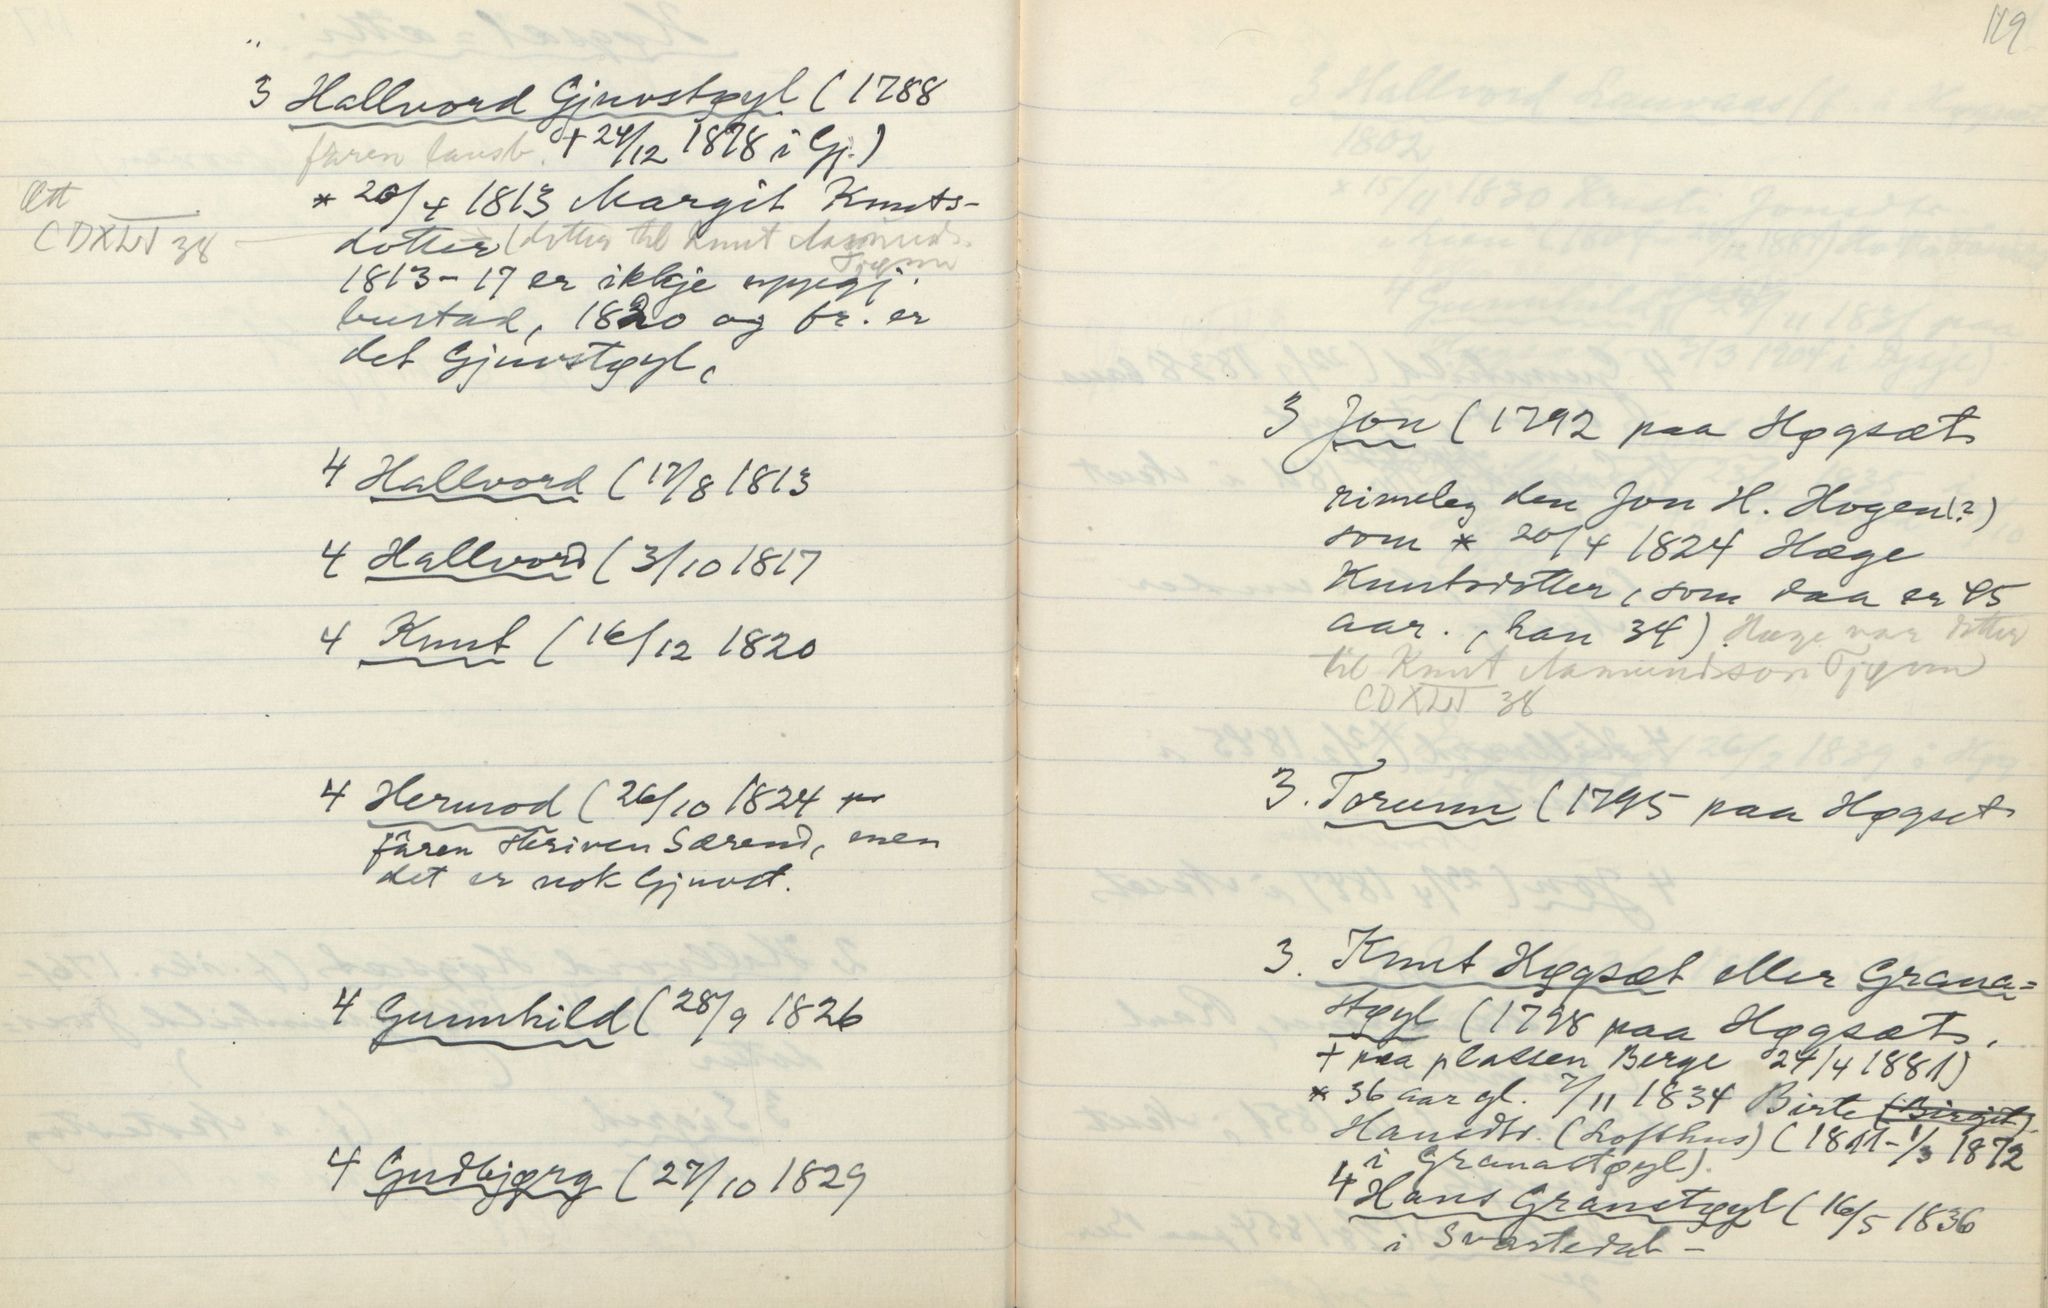 3 Hallvord Gjuvstøyl ( 1788
faren lausk. + 24/12 1878 i Gj.)
* 20/4 1813 Margit Knuts-
Ætt
CDXLV 38
dotter (dotter til Knut Aasmunds.
Tjønn
1813-17 er ikkje uppgj.
bustad, 1820 og fr. er
det Gjuvstøyl.
4 Hallvord ( 17/8 1813
4 Hallvord ( 3/10 1817
4 Knut ( 16/12 1820
4 Hermod ( 26/10 1824
faren skriven Særend, men
det er nok Gjuvst.
4 Gunnhild ( 28/9 1826
4 Gudbjørg ( 27/10 1829
119
3 Jon ( 1792 paa Høgsæt
rimeleg den Jon H. Hogen(?)
som * 20/4 1824 Hæge
Knutsdotter, som daa er 45
aar., han 34) Hæge var dotter
til Knut Aamundson Tjønn
CDXLV 38
3. Torunn ( 1795 paa Høgset
3. Knut Høgsæt eller Grana=
støyl ( 1798 paa Høgsæt,
+ paa plassen Berge 24/4 1881)
* 36 aar gl. 7/11 1834 Birte (Birgit)
Hansdtr. (Lofthus) ( 1811-1/3 1872
i Granastøyl).
4 Hans Granstøyl ( 16/5 1836
i Svartedal -